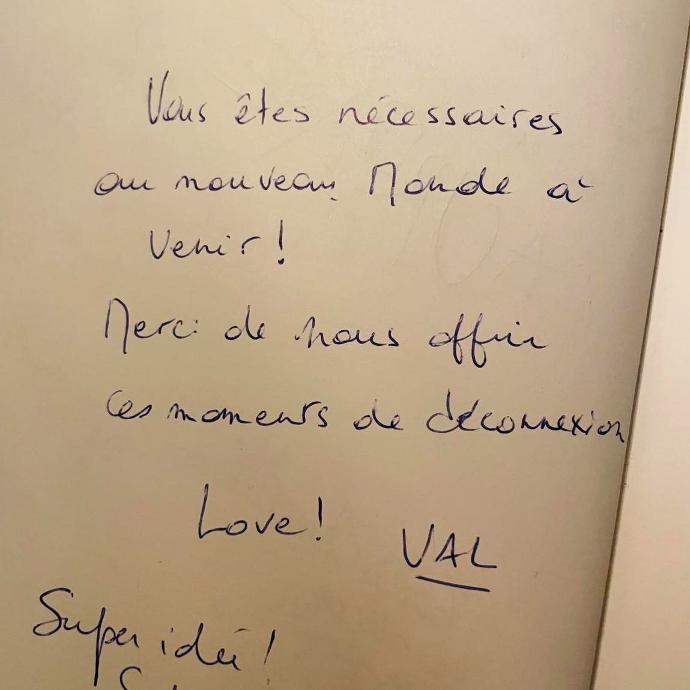 Vous êtes nécessaires
au nouveau Monde à
venir !
Merci de nous offrir
ces moments de déconnexion
Love !
VAL
Super idée !